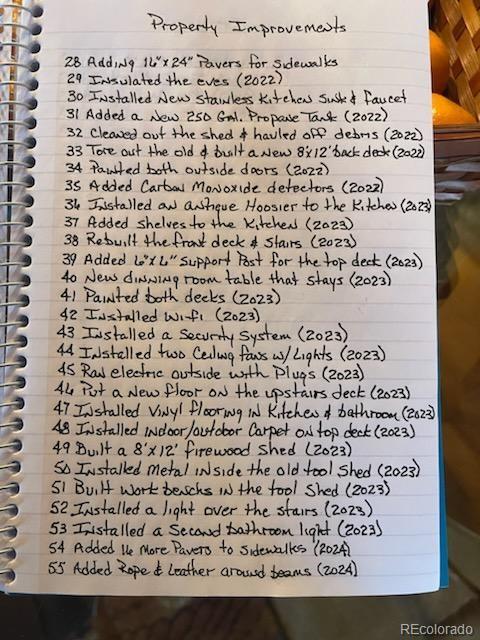 Property Improvements
28 Adding 16"x24" Pavers for Sidewalks
29 Insulated the eves (2022)
30 Installed New Stainless Kitchen Sink & faucet
31 Added a New 250 Gal. Propane Tank (2022)
32 Cleaned out the shed & hauled off debris (2022)
33 Tore out the old & built a New 8'x12' back deck (2022)
34 Painted both outside doors (2022)
35 Added Carbon Monoxide detectors (2022)
36 Installed an antique Hoosier to the Kitchen (2023)
37 Added shelves to the Kitchen (2023)
38 Rebuilt the front deck & stairs (2023)
39 Added 6"x6" Support Post for the top deck (2023)
40 New dinning room table that stays (2023)
41 Painted both decks (2023)
42 Installed Wi-fi (2023)
43 Installed a Security System (2023)
44 Installed two Ceiling fans w/ Lights (2023)
45 Ran electric outside with Plugs (2023)
46 Put a new floor on the upstairs deck (2023)
47 Installed Vinyl flooring in Kitchen & bathroom (2023)
48 Installed indoor/outdoor Carpet on top deck (2023)
49 Built a 8'x12' firewood shed (2023)
50 Installed Metal inside the old tool Shed (2023)
51 Built Work benchs in the tool Shed (2023)
52 Installed a light over the stairs (2023)
53 Installed a Second bathroom light (2023)
54 Added 16 More Pavers to Sidewalks (2024)
55 Added Rope & Leather around beams (2024)
REcolorado